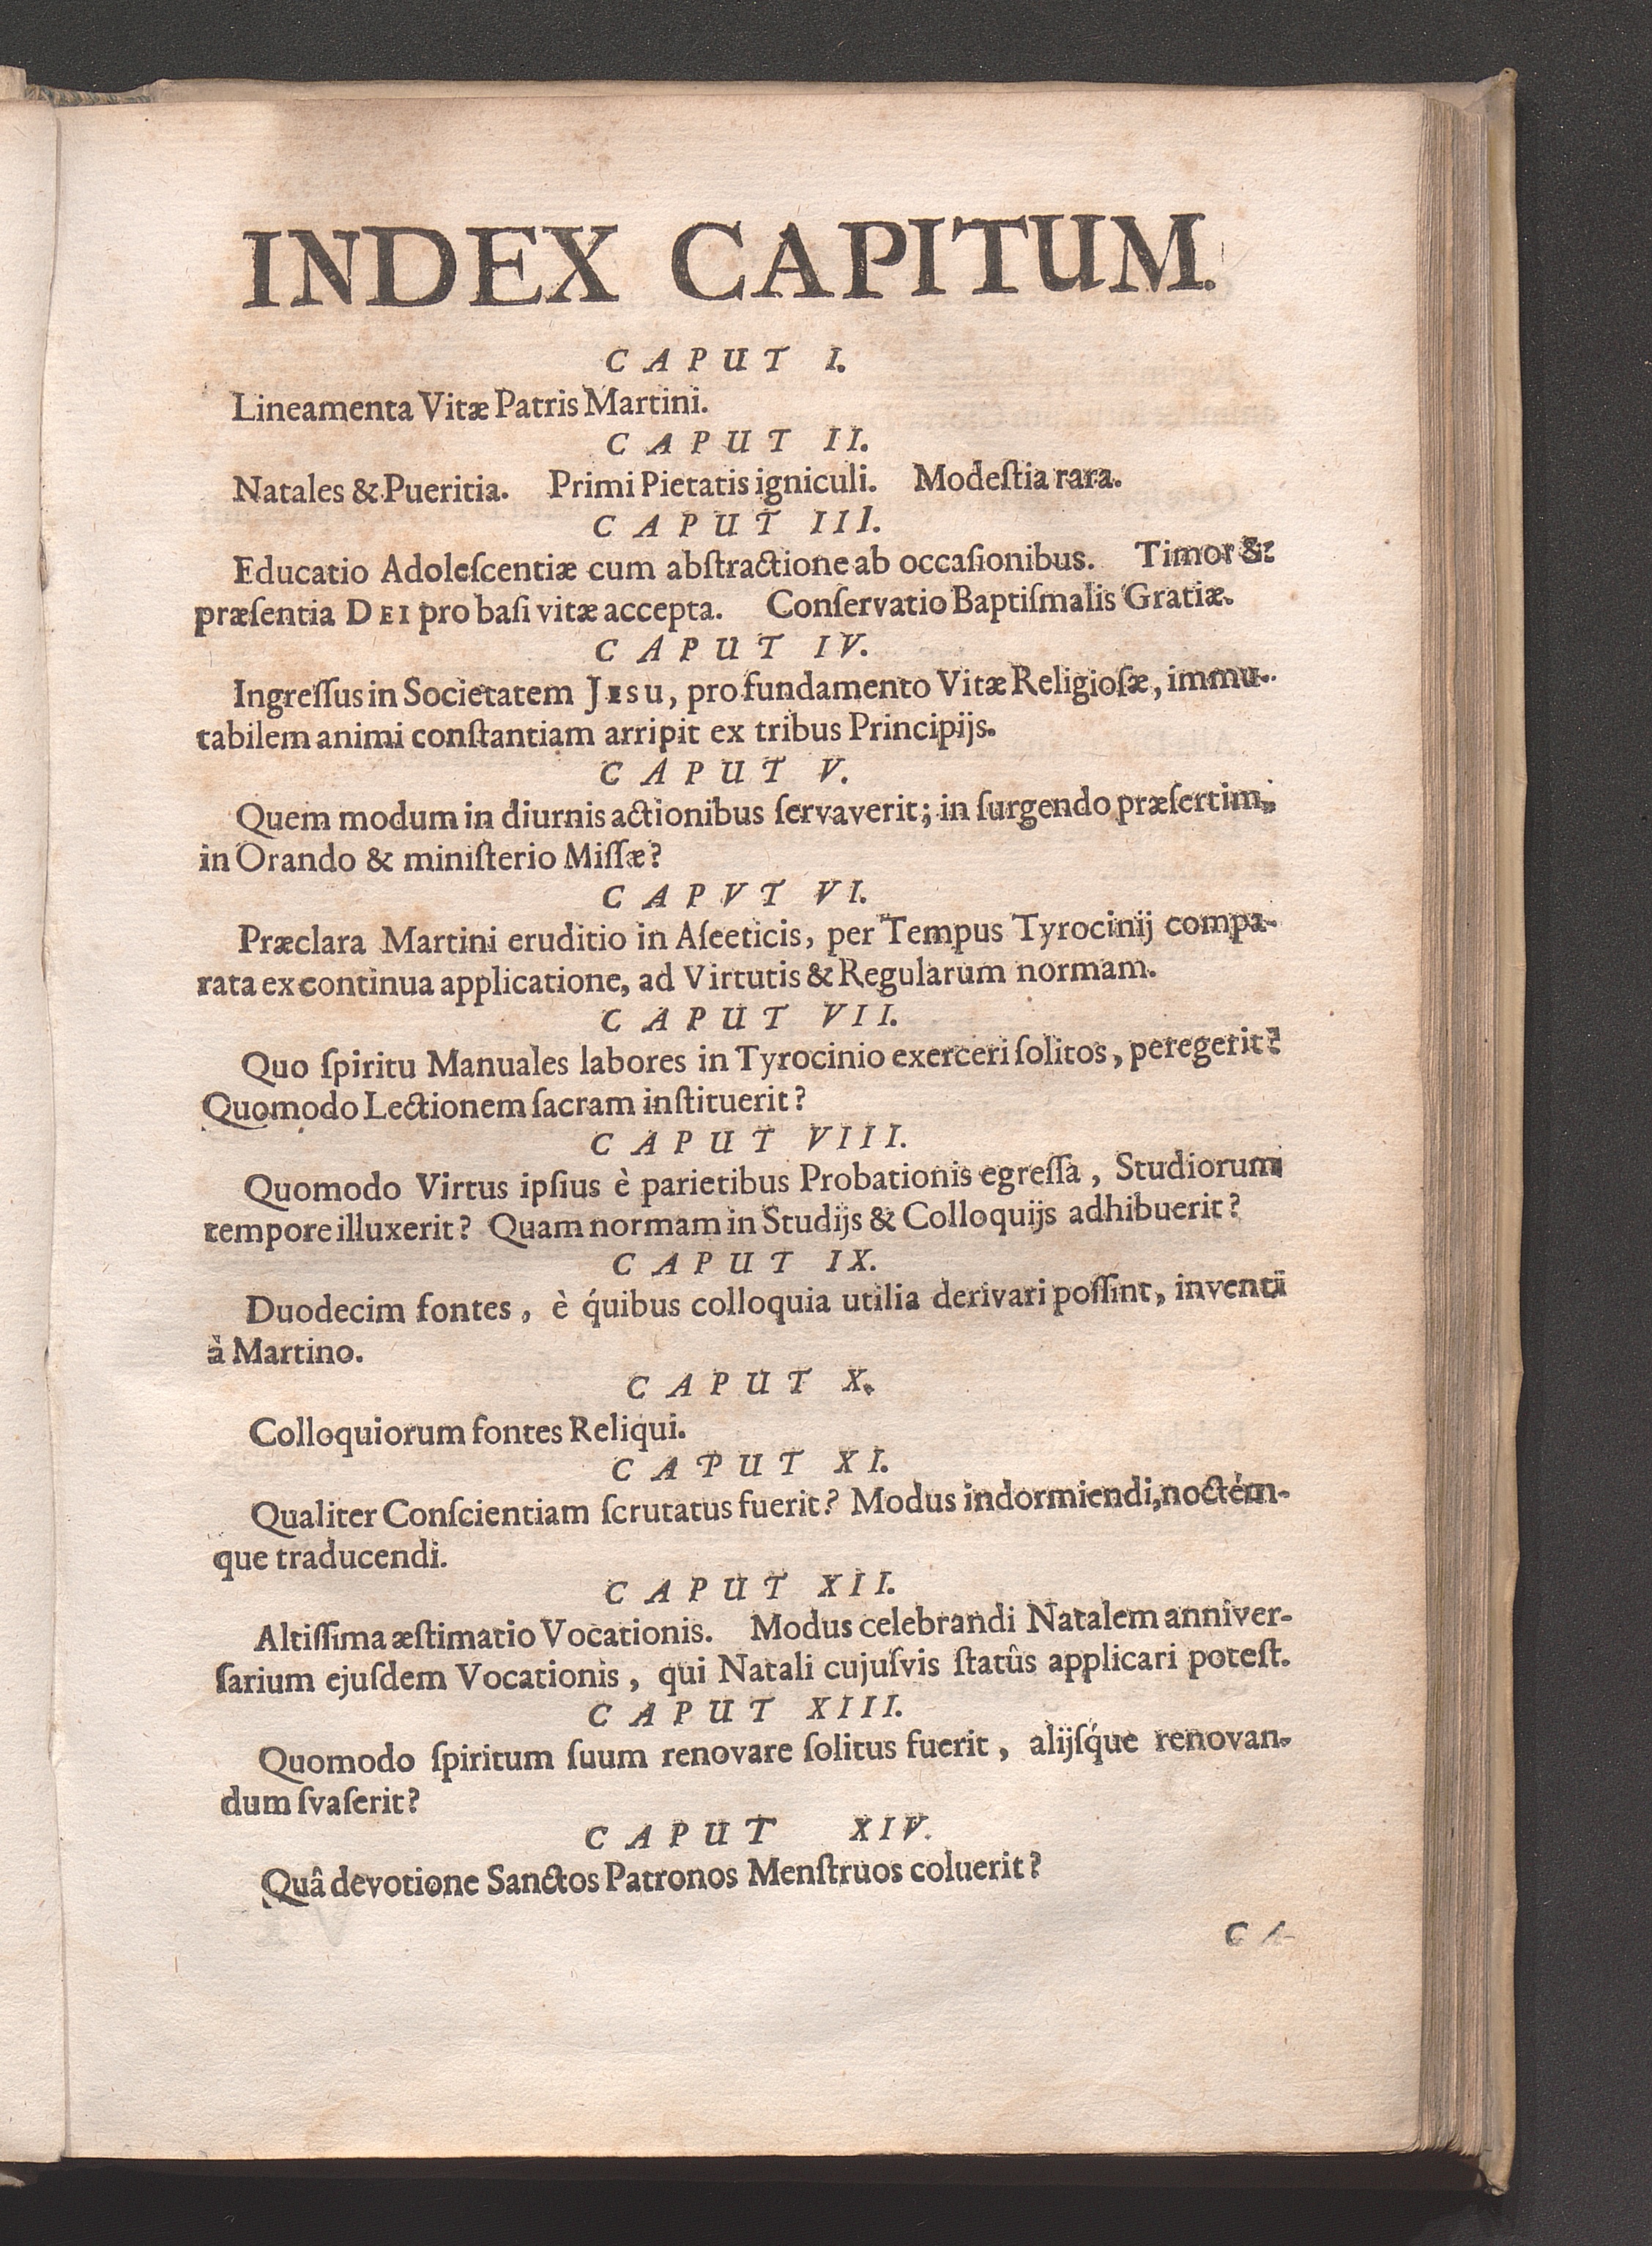 INDEX CAPITUM.
CAPUT I.
Lineamenta Vitæ Patris Martini.
CAPUT II.
Natales & Pueritia. Primi Pietatis igniculi. Modeſtia rara.
CAPUT III.
Educatio Adoleſcentiæ cum abſtractione ab occaſionibus. Timor &
præſentia DEI pro baſi vitæ accepta. Conſervatio Baptiſmalis Gratiæ.
CAPUT IV.
Ingreſſus in Societatem JESU, pro fundamento Vitæ Religioſæ, immu-
tabilem animi conſtantiam arripit ex tribus Principijs.
CAPUT V.
Quem modum in diurnis actionibus ſervaverit; in ſurgendo præſertim,
in Orando & miniſterio Miſſæ?
CAPVT VI.
Præclara Martini eruditio in Aſeeticis, per Tempus Tyrocinij compa-
rata ex continua applicatione, ad Virtutis & Regularum normam.
CAPUT VII.
Quo ſpiritu Manuales labores in Tyrocinio exerceri ſolitos, peregerit?
Quomodo Lectionem ſacram inſtituerit?
CAPUT VIII.
Quomodo Virtus ipſius è parietibus Probationis egreſſa, Studiorum
tempore illuxerit? Quam normam in Studijs & Colloquijs adhibuerit?
CAPUT IX.
Duodecim fontes, è q́uibus colloquia utilia derivari poſſint, inventi
à Martino.
CAPUT X.
Colloquiorum fontes Reliqui.
CAPUT XI.
Qualiter Conſcientiam ſcrutatus fuerit? Modus indormiendi, noctém-
que traducendi.
CAPUT XII.
Altiſſima æſtimatio Vocationis. Modus celebrandi Natalem anniver-
ſarium ejuſdem Vocationis, qui Natali cujuſvis ſtatûs applicari poteſt.
CAPUT XIII.
Quomodo ſpiritum ſuum renovare ſolitus fuerit, alijſq́ue renovan-
dum ſvaſerit?
CAPUT XIV.
Quâ devotione Sanctos Patronos Menſtruos coluerit?
CA-